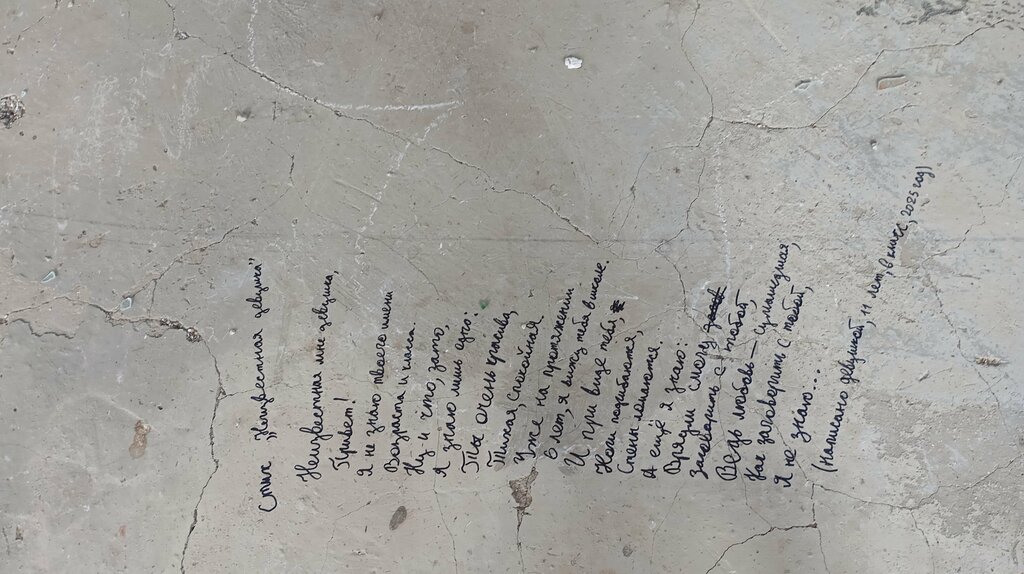 Стих „Неизвестная девушка"
Неизвестная мне девушка,
Привет!
Я не знаю твоего имени
Возраста и класса.
Ну и что, зато,
Я знаю лишь одно:
Ты очень красива,
Тихая, спокойная.
Уже на протяжении
6 лет, я вижу тебя в школе.
И при виде тебя,
Ноги подгибаются,
Стены ломаются.
А ещё я знаю:
Врядли смогу
заговорить с тобой
Ведь любовь – сумасшедшая,
Как заговорить с тобой,
Я не знаю...
(написано девушкой, 11 лет, 6 класс, 2025 год)